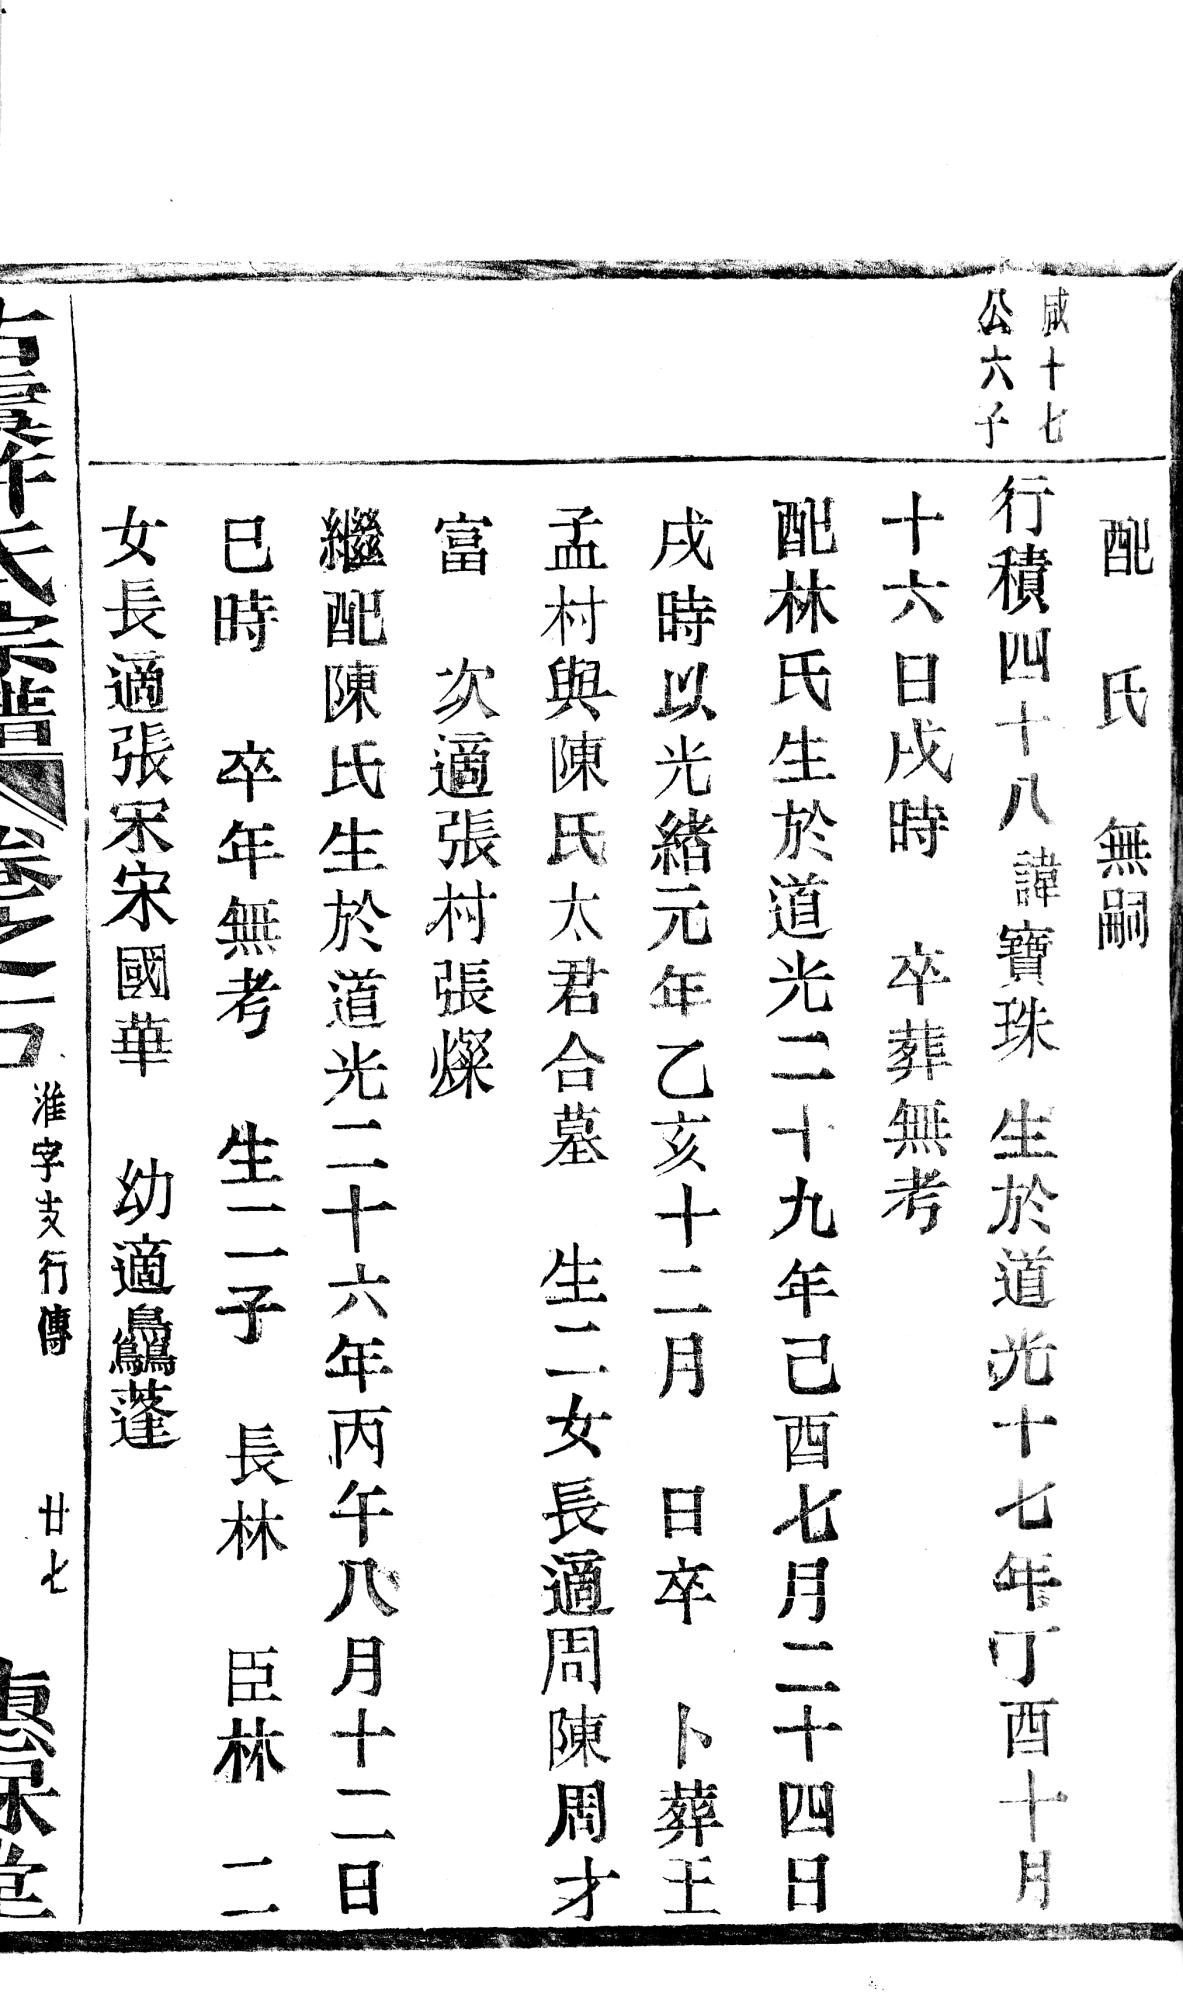 配　氏　無嗣
咸十七
公六子
行積四十八諱寶珠　生於道光十七年丁酉十月
十六日戌時　卒葬無考
配林氏生於道光二十九年己酉七月二十四日
戌時以光緒元年乙亥十二月　日卒　卜葬王
孟村與陳氏太君合墓　生二女長適周陳周才
富　次適張村張燦
繼配陳氏生於道光二十六年丙午八月十二日
巳時　卒年無考　生二子　長林　臣林　二
女長適張宋宋國華　幼適鱻蓬
氏宗譜　卷之一　淮字支行傳　廿七　惠保堂